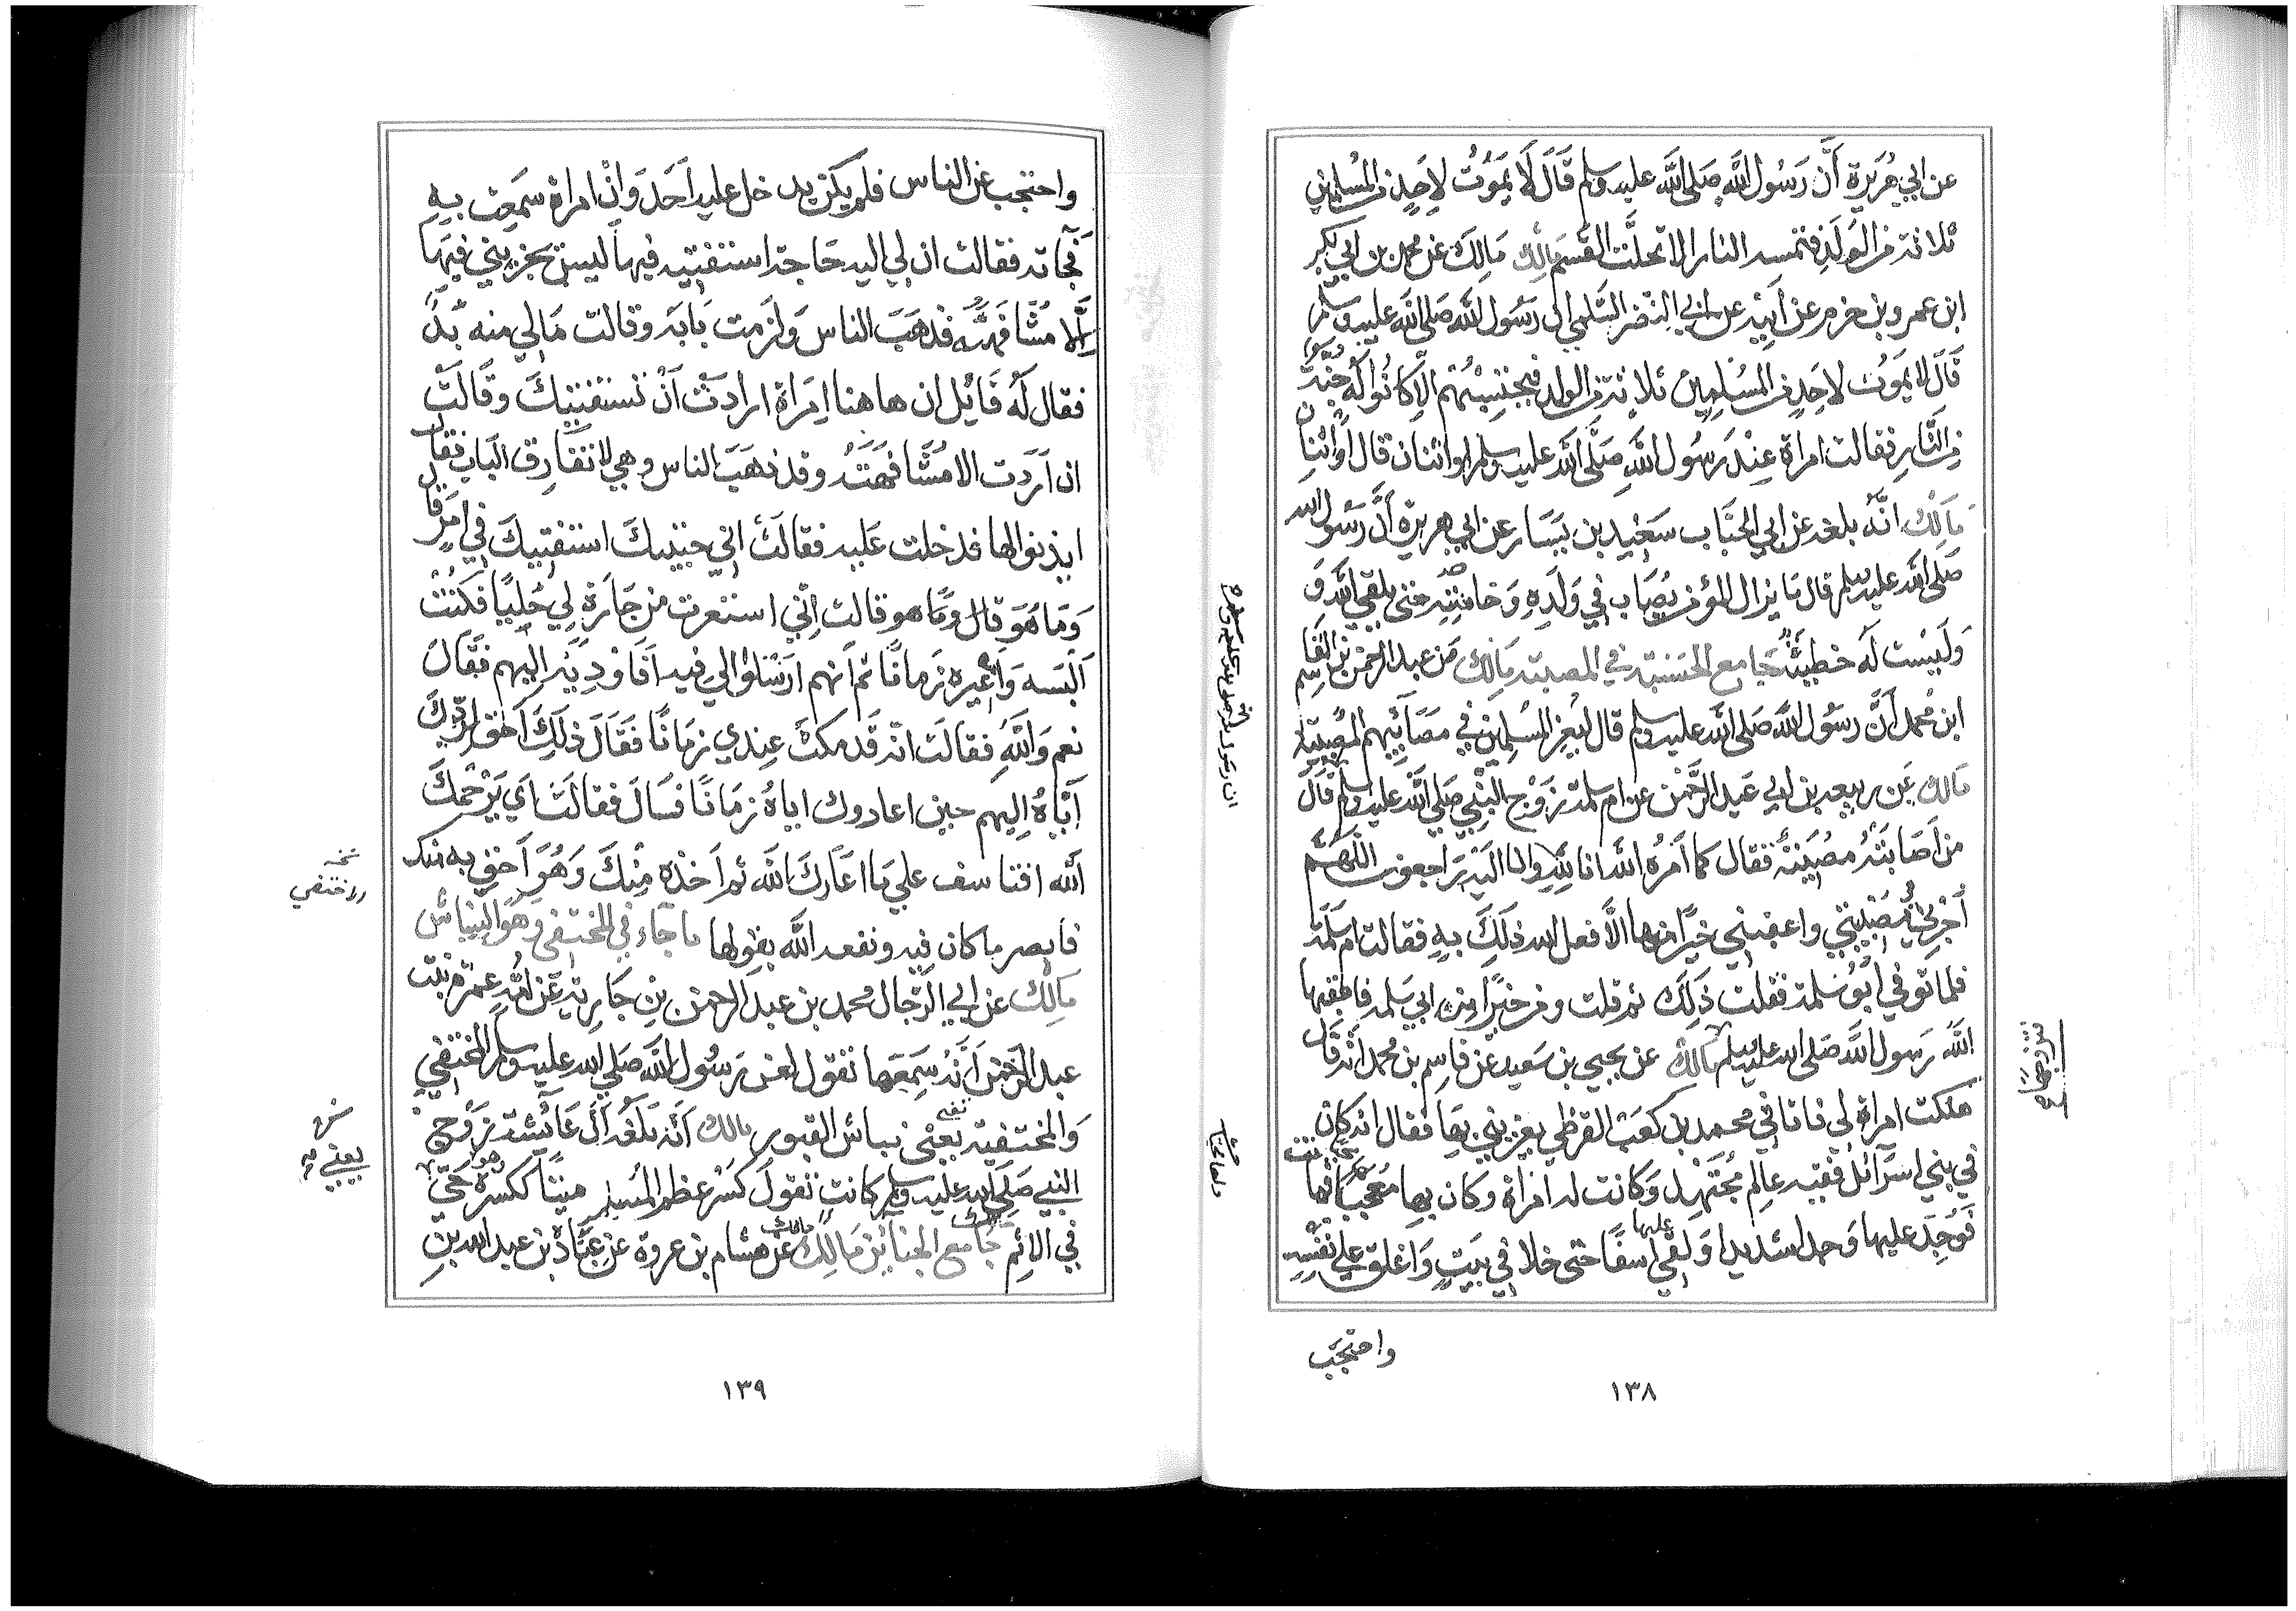 عن ابي هُرَيرة أنّ رَسُول الله صَلى الله عليه وسلم قَالَ لَا يَموُتُ لِاَحِدٍ من المُسلمين
ثلاثة من الوَلَدِ فتمسه النار الا تحلَّت القَسَم مالك مَالِكَ عَن محمد بن ابي بكر
ابن عمرو بن حزم عن اَبيْهِ عن ابي النّضر السَّلمي ان رسُول الله صَلى الله عليه وسلم
قَالَ لا يَموُت لاحَدٍ من المسُلمِينَ ثلاثة من الولد فيحتسِبُهُم الّا كَانُوا له جُنَّةً
مِنَ النَّارِ فقالت امراة عِنْدَ رَسُول اللهِ صَلَّى الله عليه وسلم او اثنان قال أوِ اثنان
مَالِكُ انّهُ بلغه عن ابي الحبَاب سَعْيد بن يَسَار عن ابي هريرة أنّ رَسُول الله
صَلى الله عليه وسلم قال مَا يزال المؤمن يُصَاب في وَلَدِهِ وَحَامتِهِ حتى يلقي اللهَ وَ
وَلَيْست لَه خطيئَةٌ جَامع الحسبة في المصيبة مَالِك عَن عبد الرحمن بن القَاسِم
ابن محمد أنَّ رسُول الله صَلى الله عليه وسلم قال ليُعز المسُلِمِين في مصَائبهِم المصُيبَة
مَالك عَن ربيعه بن ابي عَبد الرَّحمن عن ام سلمة زَوْج النبي صَلي الله عليه وسلم قَالَ
من اَصَابَتْهُ مُصِيْبَةٌ فقال كما اَمَرُه الله انا للهِ وانا اليهِ رَاجعون اللهُمَّ
اَجرني في مُصِيْبتي واعقبني خَيرًا منها الّا فعل الله ذلَكَ بِهِ فقالت ام سَلمَة
فلما توفي ابُو سَلمة فقلت ذَلِكَ ثم قلت ومن خَيرٌ من ابي سَلمة فاعقبها
اللهُ رَسول الله صَلى الله عليه وسلم مالكُ عن يحيي بن سَعيد عن قاسِم بن محمد انّه قَال
هلكت امراة لي فاتاني محمد بن كعَب القرظي يعزيني بِهَا فقال انه كان
في بني اسرَآئل فقيه عالِم مُجتَهِد وَكانت له امراة وكان بها مُعجبًا فماتت
فَوجَد عليها وَجدا شديدا وَلقي عليها اسفًا حتى خلا في بَيت وَاغلق علي نَفسِهِ
واحتجَب
ان رسول الله صلى الله عليه وسلم
ولها محبا
تزوجها
١٣٨
واحتجب عن الناس فلم يكن يدخل عليه اَحَد وَانْ امراة سَمِعت بِهِ
فجاته فقالت ان لي اليه حَاجة استفتيه فيها ليسَ يجزيني فيهَا
اِلَّا مُشَافهَته فذهَبَ الناس وَلزمت بَابَه وقالت مَا لي منه بُدٌّ
فقال لَه قَائل ان هاهنا اِمرَاة ارادَتْ اَنْ تستَفتيكَ وقَالَتْ
ان اَردَت الا مُشَافَهَتَهُ وقد ذهَبَ الناس وهي لا تفَارق البَاب فقال
ايذنوا لها فدخلت عَليه فقالَتْ اني جئتك استَفتيكَ في امَرٍ قَال
وَمَا هُوَ قال ومَا هو قالت اِنّي استعرت من جَارَةٍ لِي حُليًّا فَكُنْتُ
اَلبسَه وَاعيره زَمانًا ثم اَنهم ارَسلوا الي فيه اَفَاوديْه اليهم فقَال
نعم وَاللهِ فقالَت انه قَد مكث عِندي زمَانًا فقَالَ ذلَكَ اَحَق لِردّكِ
اَيّاهُ اِليهم حين اعاروك اياهُ زمَانًا قَال فقالت اَي يَرْحمكَ
الله افتاسف علي مَا اعَاركَ الله ثم اَخذه مِنْكَ وَهُوَ اَحق به منك
فابصر ما كان فيه ونفعه الله بقولها مَا جَاء في المختفي وهُوَ النباش
مَالِك عن ابي الرّجال محمد بن عبد الرحمن بن جَارِية عَن اُمِّهِ عَمرة بنت
عبد الرَّحمْن اَنّه سَمِعَها تقول لعن رَسُول اللَّه صَلي الله عليه وسلم المختفي
وَالمختفية يَعني نباش القبور مالك اَنّه بَلغه اَنَّ عَائشة زَوْج
النبي صَلي الله عليه وسلم كانت تقولَ كَسْر عظم المُسلِم ميتًا ككسره وهو حَيّ
في الاثم جَامع الجنائز مَالِك عن هشام بن عروة عن عبَّاد بن عبد الله بن
نسخه
يعني
١٣٩